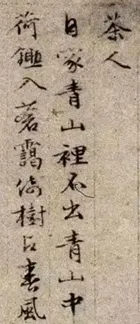 茶人
自家青山裡不出青山中
荷鉏入蒼靄倚樹占春風